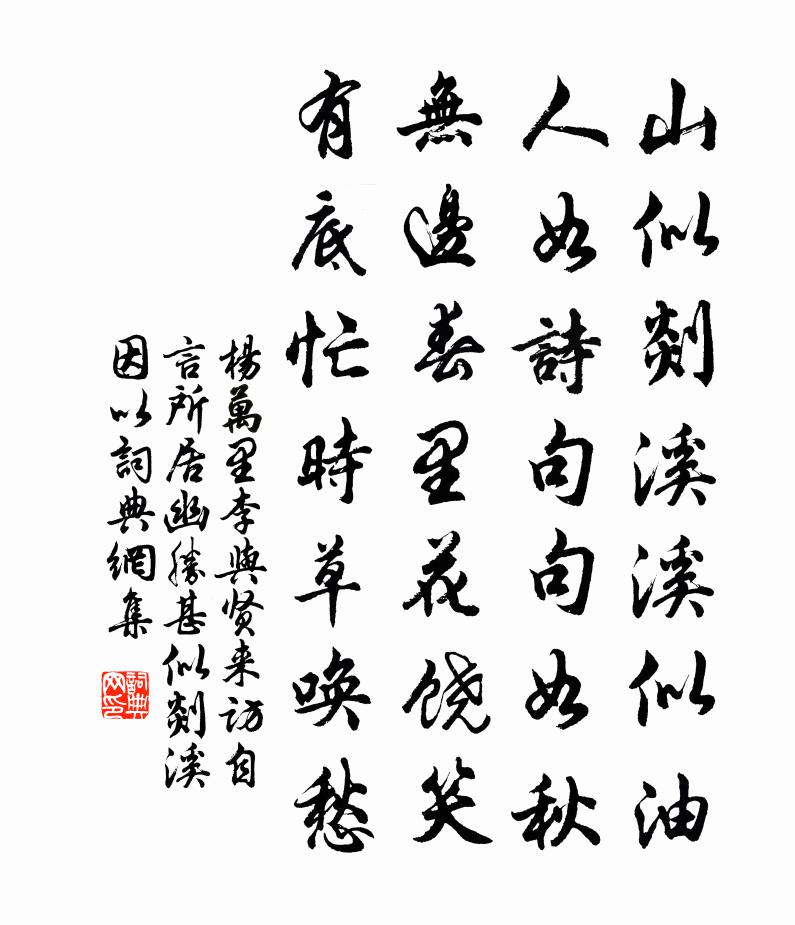 山似剡溪溪似油
人如詩句句如秋
無邊春里花饶笑
有底忙時草唤愁
楊萬里李與贤来访自
言所居幽勝甚似剡溪
因以詞典網集
詞典网印